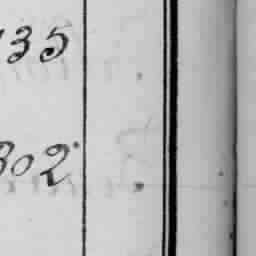 135
302